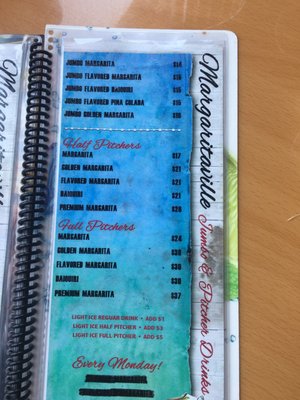 Margaritaville
Jumbo & Pitcher Drinks
JUMBO MARGARITA $14
JUMBO FLAVORED MARGARITA $15
JUMBO FLAVORED DAIQUIRI $15
JUMBO FLAVORED PINA COLADA $15
JUMBO GOLDEN MARGARITA $16
Half Pitchers
MARGARITA $17
GOLDEN MARGARITA $21
FLAVORED MARGARITA $21
DAIQUIRI $21
PREMIUM MARGARITA $26
Full Pitchers
MARGARITA $24
GOLDEN MARGARITA $30
FLAVORED MARGARITA $30
DAIQUIRI $30
PREMIUM MARGARITA $37
LIGHT ICE REGUAR DRINK • ADD $1
LIGHT ICE HALF PITCHER • ADD $3
LIGHT ICE FULL PITCHER • ADD $5
Every Monday!